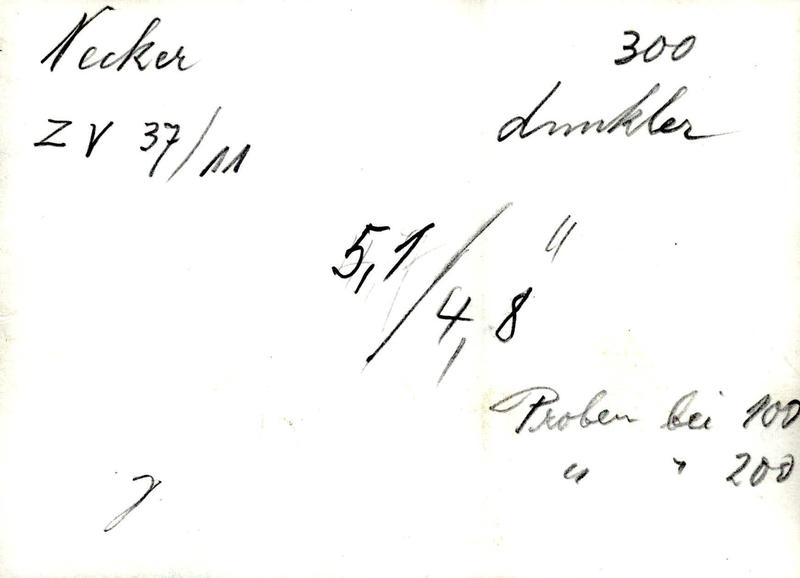 Necker
300
ZV 37/11
dunkler
5,1/4,8 "
Proben bei 100
" " 200